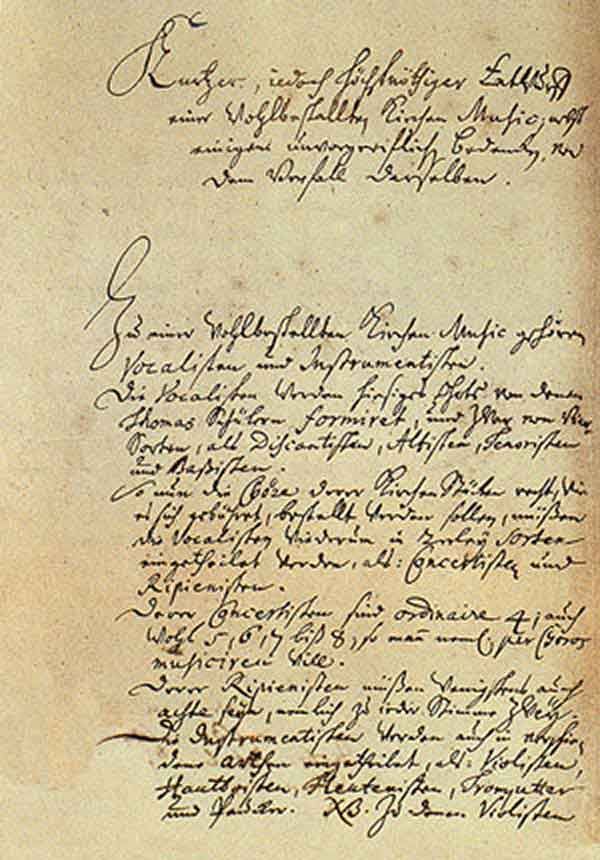 Kurtzer, iedoch höchstnöthiger Entwurff
einer wohlbestallten Kirchen Music; nebst
einigem unvorgreiflichen Bedencken von
dem Verfall derselben.
Zu einer wohlbestellten Kirchen Music gehören
Vocalisten und Instrumentisten.
Die Vocalisten werden hiesiges Ohrts von denen
Thomas Schülern formiret, und zwar von vier
Sorten, als Discantisten, Altisten, Tenoristen
und Baßisten.
So nun die Chöre derer Kirchen Stücken recht, wie
es sich gebühret, bestellt werden sollen, müßen
die Vocalisten wiederum in 2erley Sorten
eingetheilet werden, als: Concertisten und
Ripienisten.
Derer Concertisten sind ordinaire 4; auch
wohl 5, 6, 7 biß 8; so man neml. per Choros
musiciren will.
Derer Ripienisten müßen wenigstens auch
achte seyn, nemlich zu ieder Stimme zwey.
Die Instrumentisten werden auch in verschie-
dene Arthen eingetheilet, als: Violisten,
Hautboisten, Fleutenisten, Trompetter
und Paucker. NB. Zu denen Violisten